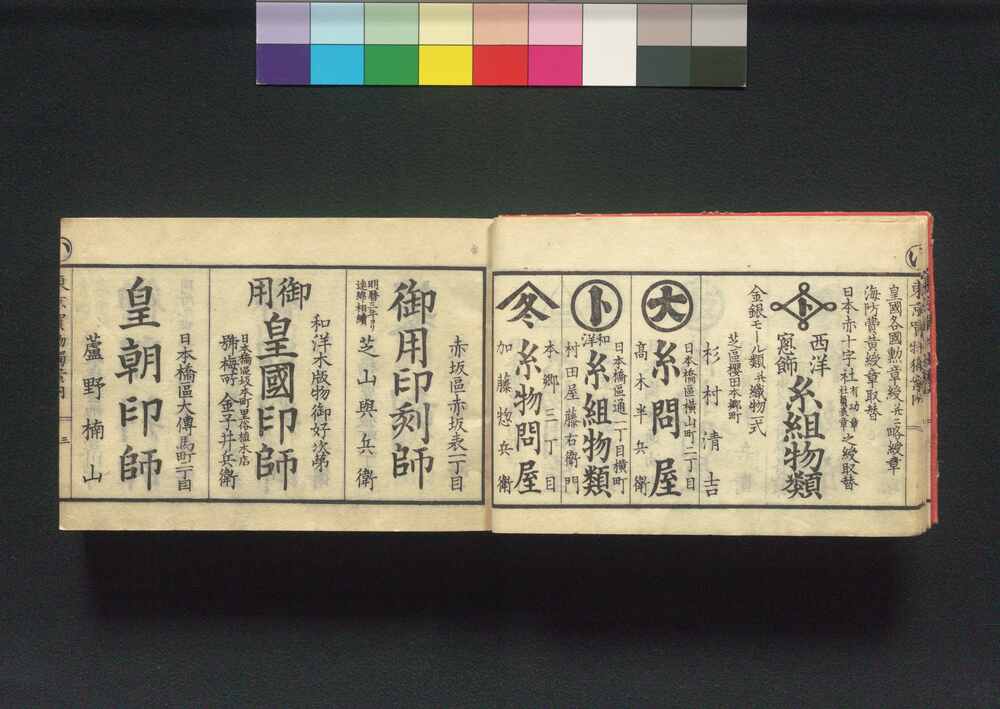 い
皇國各國勲章綬并ニ略綬章
海防費黄綬章取替
日本赤十字社
有功章
社員章
之綬取替
ト
西洋
窓飾
糸組物類
金銀モール類并織物一式
芝區櫻田本郷町
杉村清吉
大
糸問屋
日本橋區横山町二丁目
高木半兵衛
ト
和洋
糸組物類
日本橋區通一丁目横町
村田屋藤右衛門
冬
糸物問屋
本郷三丁目
加藤惣兵衛
赤坂區赤坂表一丁目
御用印刻師
明暦三年ヨリ
連綿相續
芝山與兵衛
和洋木版物御好次第
御用
皇國印師
日本橋區坂本町里俗植木店
號梅所
金子井兵衛
日本橋區大傳馬町二丁目
皇朝印師
蘆野楠山
い
三